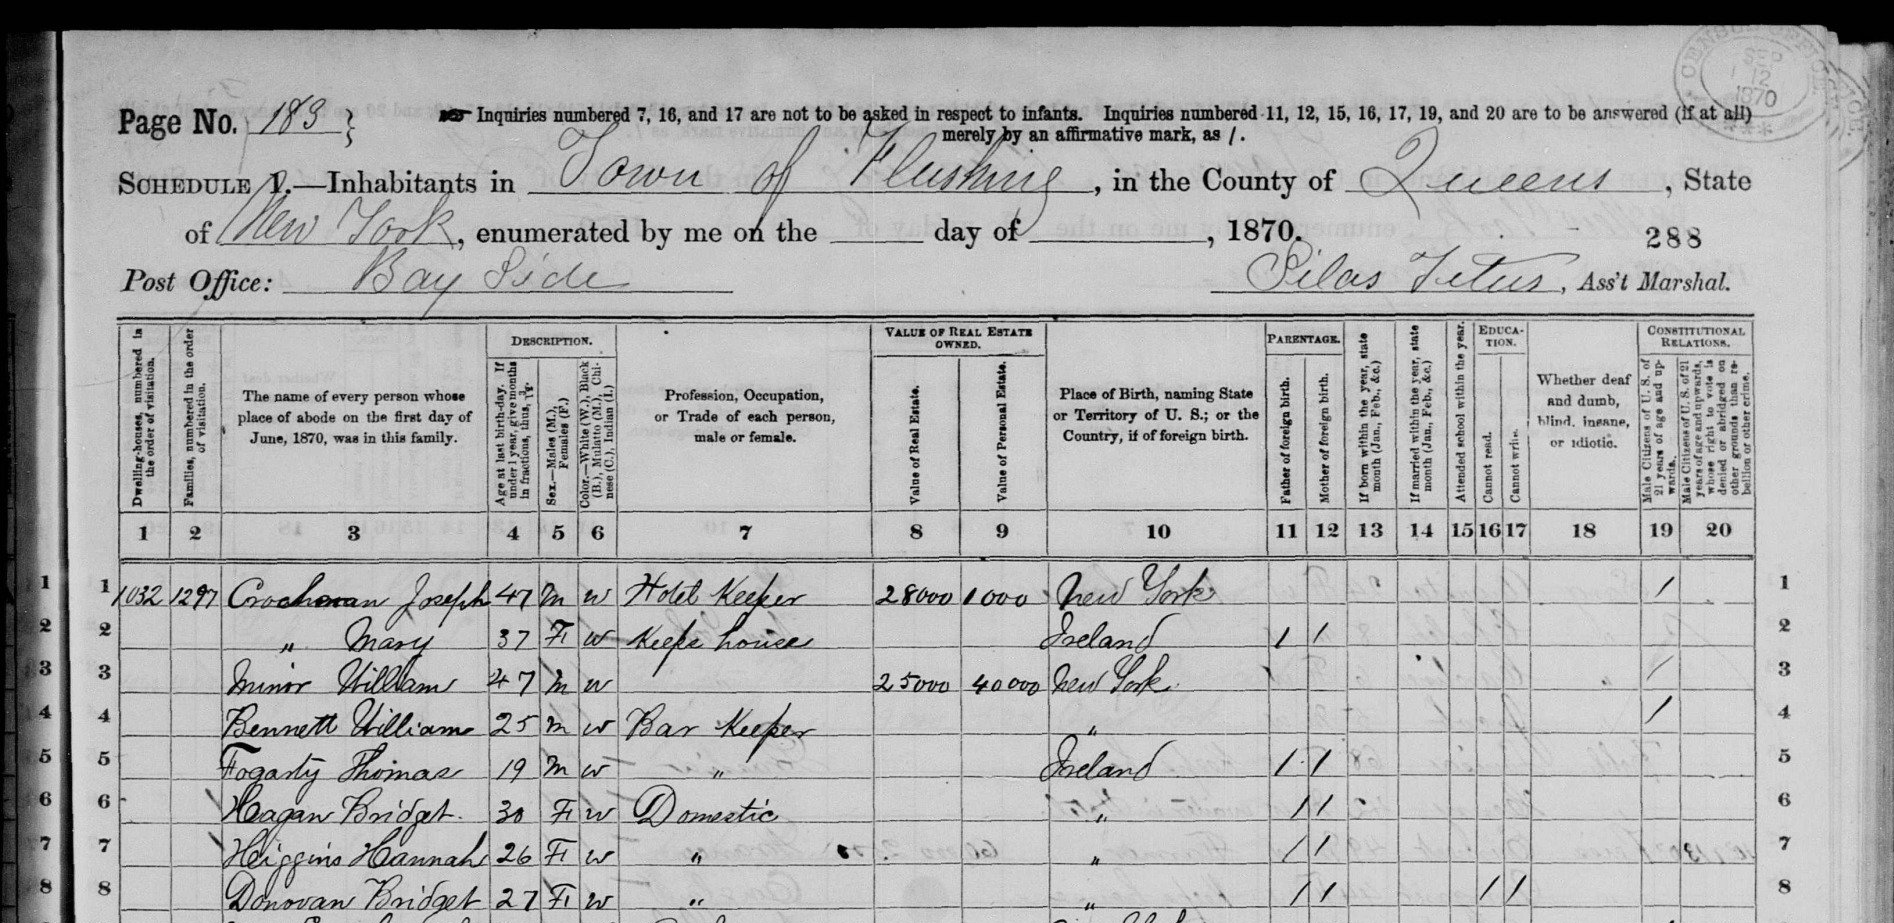 CENSUS OFFICE
SEP
12
1870
Page No. 183
Inquiries numbered 7, 16, and 17 are not to be asked in respect to infants. Inquiries numbered 11, 12, 15, 16, 17, 19, and 20 are to be answered (if at all)
merely by an affirmative mark, as /.
SCHEDULE 1.—Inhabitants in Town of Flushing, in the County of Queens, State
of New York, enumerated by me on the ____ day of ____, 1870.
288
Post Office: Bay Side Silas Titus, Ass't Marshal.
Dwelling-houses, numbered in the order of visitation.
Families, numbered in the order of visitation.
The name of every person whose place of abode on the first day of June, 1870, was in this family.
DESCRIPTION.
Age at last birth-day. If under 1 year, give months in fractions, thus, 3/12.
Sex.—Males (M.), Females (F.)
Color.—White (W.), Black (B.), Mulatto (M.), Chinese (C.), Indian (I.)
Profession, Occupation, or Trade of each person, male or female.
VALUE OF REAL ESTATE OWNED.
Value of Real Estate.
Value of Personal Estate.
Place of Birth, naming State or Territory of U. S.; or the Country, if of foreign birth.
PARENTAGE.
Father of foreign birth.
Mother of foreign birth.
If born within the year, state month (Jan., Feb., &c.)
If married within the year, state month (Jan., Feb., &c.)
Attended school within the year.
EDUCATION.
Cannot read.
Cannot write.
Whether deaf and dumb, blind, insane, or idiotic.
CONSTITUTIONAL RELATIONS.
Male Citizens of U. S. of 21 years of age and upwards.
Male Citizens of U. S. of 21 years of age and upwards, whose right to vote is denied or abridged on other grounds than rebellion or other crime.
1 2 3 4 5 6 7 8 9 10 11 12 13 14 15 16 17 18 19 20
1 1 1032 1297 Joseph 47 m w Hotel Keeper 28000 1000 New York / 1
2 2 " Mary 37 F w Keeps house Ireland / / 2
3 3 Minor William 47 m w 25000 40000 New York / 3
4 4 Bennett William 25 m w Bar Keeper " / 4
5 5 Fogarty Thomas 19 m w " Ireland / / 5
6 6 Hagan Bridget 30 F w Domestic " / / 6
7 7 Higgins Hannah 26 F w " " / / 7
8 8 Donovan Bridget 27 F w " " / / / / 8